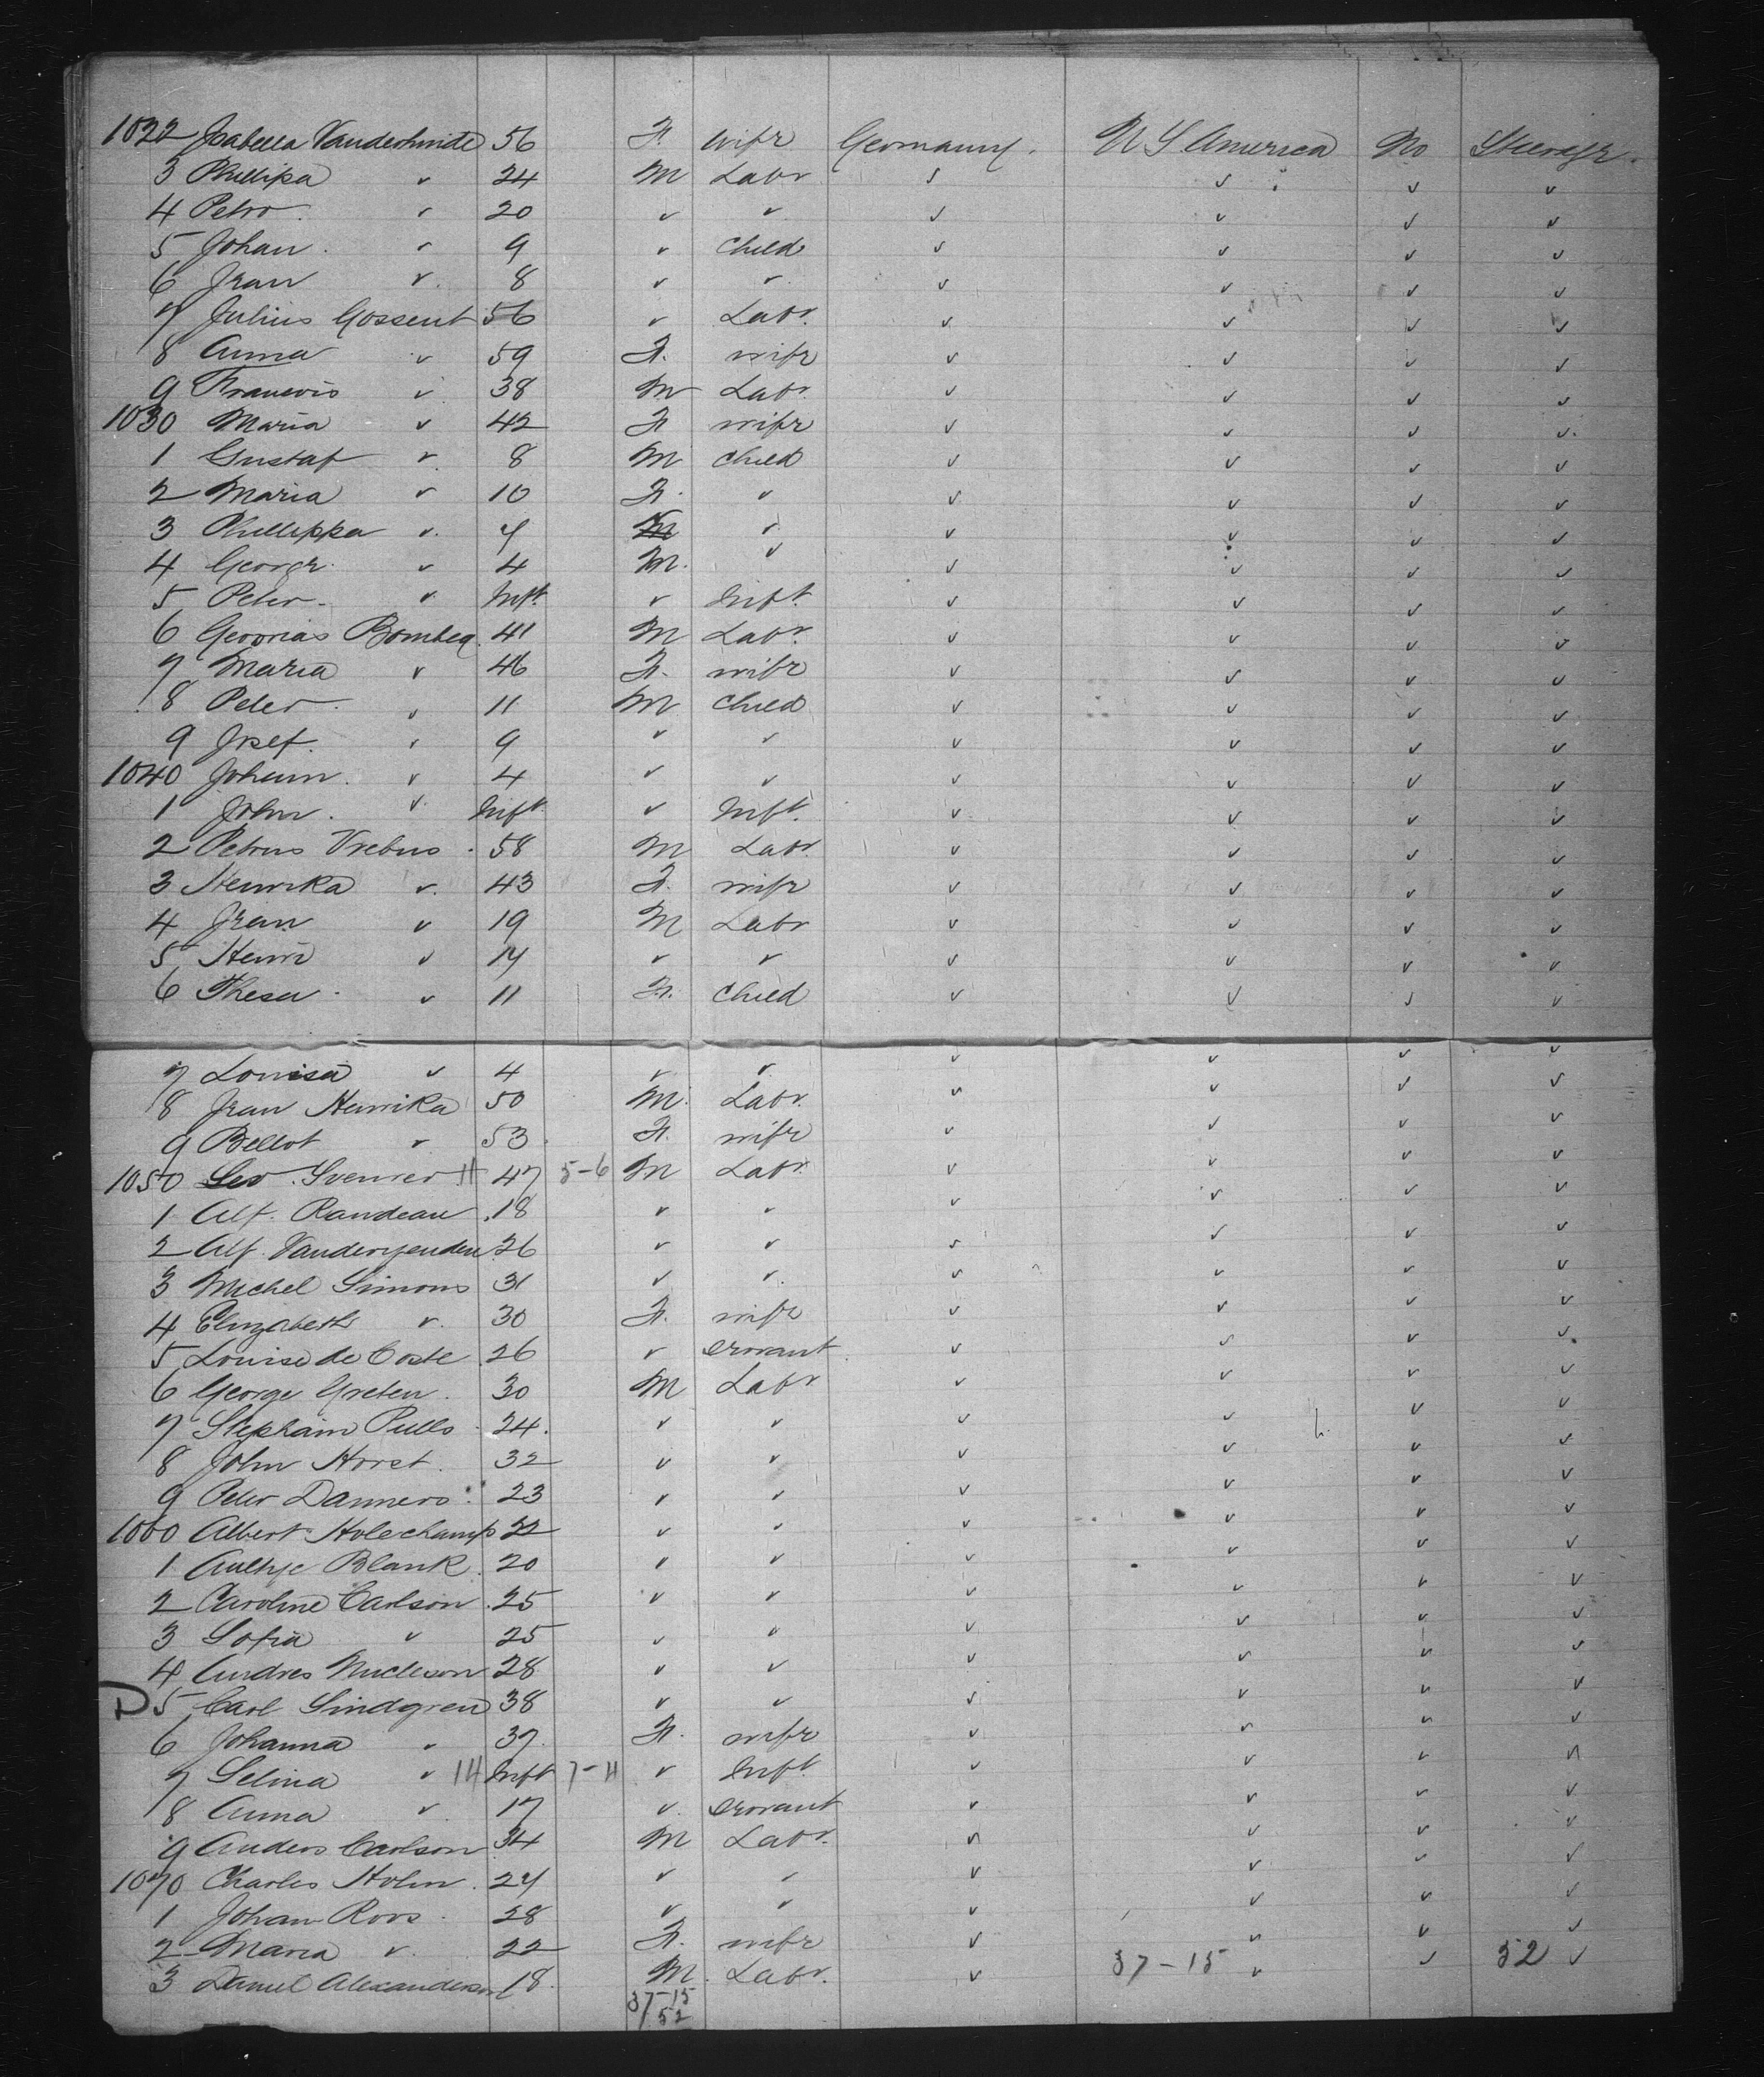 1022 Isabella Vanderhmide 56 F. wife Germany. U S America No Steerage.
3 Phillipa v 24 M Labr v v v v
4 Petro v 20 v v v v v v
5 Johan v 9 v child v v v v
6 Jean v 8 v v v v v v
7 Julius Gossent 56 v Labr. v v v v
8 Anna v 59 F. wife v v v v
9 Francois v 38 M Labr v v v v
1030 Maria v 42 F wife v v v v
1 Gustaf v 8 M child v v v v
2 Maria v 10 F. v v v v v
3 Phillippa v 7 v v v v v
4 George v 4 M. v v v v v
5 Peter v Inft. v Inft. v v v v
6 Bombeq. 41 M Labr. v v v v
7 Maria v 46 F. wife v v v v
8 Peter v 11 M child v v v v
9 Josef. v 9 v v v v v v
1040 Johann. v 4 v v v v v v
1 John. v Inft v Inft. v v v v
2 Petrus Vrebus 58 M Labr. v v v v
3 Henrika v 43 F. wife v v v v
4 Jean v 19 M Labr v v v v
5 Henri v 14 v v v v v v
6 Thesa v 11 F. child v v v v
7 Louisa v 4 v v v v v v
8 Jean Henrika 50 M. Labr. v v v v
9 Bellot v 53 F. wife v v v v
1050 Leo 11 47 5-6 M Labr. v v v v
1 Alf. Randeau 18 v v v v v v
2 Alf. 26 v v v v v v
3 Michel Simons 31 v v v v v v
4 Elizabeth v 30 F. wife v v v v
5 Louise de Coste 26 v servant v v v v
6 George Greten. 30 M Labr v v v v
7 Stephain Pulls 24. v v v v v v
8 John Horst. 32 v v v v v v
9 Peter Danners 23 v v v v v v
1060 Albert Holechamp 22 v v v v v v
1 Blank 20 v v v v v v
2 Caroline Carlson 25 v v v v v v
3 Sofia v 25 v v v v v v
4 Andres 28 v v v v v v
D 5 Carl Lindgren 38 v v v v v v
6 Johanna v 37. F. wife v v v v
7 Selina v 14 Inft 7-11 v Inft. v v v v
8 Anna v 17 v. servant v v v v
9 Anders Carlson 34 M Labr. v v v v
1070 Charles Holm. 24 v v v v v v
1 Johan Roos. 28 v v v v v v
2 Maria v 22 F. wife v v v v
3 Daniel Alexanderson 18. M. Labr. v 37-15 v v 52 v
37-15
52